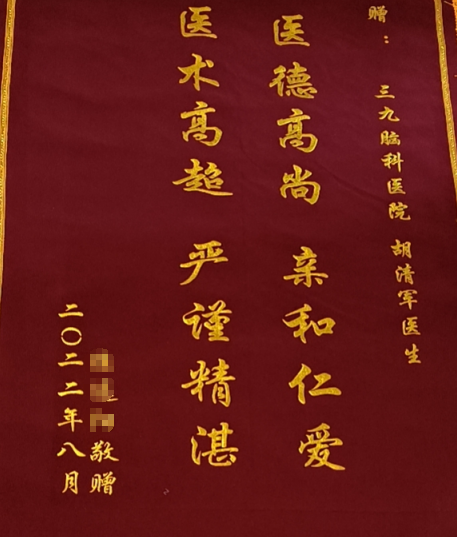 赠：
三九脑科医院 胡清军医生
医德高尚 亲和仁爱
医术高超 严谨精湛
敬赠
二〇二二年八月